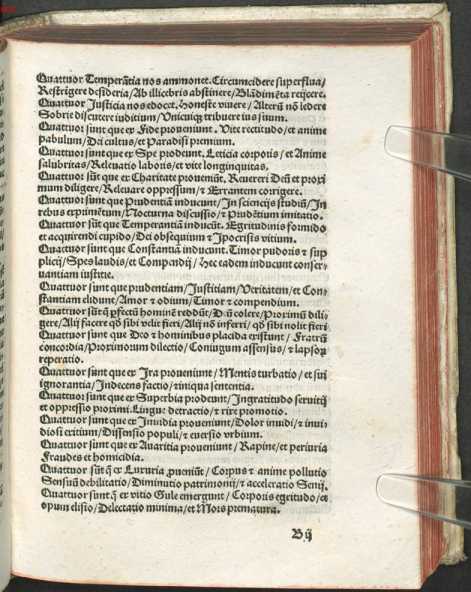 Quattuor Temperãtia nos ammonet. Circumcidere superflua/
Restrigere desideria/Ab illicebris abstinere/Blãdimẽta reijcere.
Quattuor Justicia nos edocet. Honeste viuere/Alterũ nõ ledere
Sobrie discutere iuditium/Vnicuiqʒ tribuere ius suum.
Quattuor sunt que ex Fide proueniunt. Vite rectitudo/et anime
pabulum/Dei cultus/et Paradisi premium.
Quattuor sunt que ex Spe prodeunt. Leticia corporis/et Anime
salubritas/Releuatio laboris/et vite longinquitas.
Quattuor sũt que ex Charitate proueniũt. Reuereri Deũ et proxi
mum diligere/Releuare oppressum/ꝛ Errantem corrigere.
Quattuor sunt que Prudentiã inducunt/In sciencijs studiũ/In
rebus exprimẽtum/Nocturna discussio/ꝛ Prudẽtium imitatio.
Quattuor sũt que Temperantiã inducũt. Egritudinis formido
et acquirendi cupido/Dei obsequium ꝛ Ipocrisis vitium.
Quattuor sunt que Constantiã inducunt. Timor pudoris ꝛ sup
plicij/Spes laudis/et Compendij/hec eadem inducunt conser-
uantiam iustitie.
Quattuor sunt que prudentiam/Justitiam/Veritatem/et Con-
stantiam elidunt/Amor ꝛ odium/Timor ꝛ compendium.
Quattuor sũt q̃ ꝑfectũ hominẽ reddũt/Dm̃ colere/Proximũ dili-
gere/Alij facere qđ sibi velit fieri/Alij nõ inferri/qđ sibi nolit fieri
Quattuor sunt que Deo ꝛ hominibus placida existunt/Fratrũ
concordia/Proximorum dilectio/Coniugum assensus/ꝛ lapsorũ
reperatio.
Quattuor sunt que ex Ira proueniunt/Mentis turbatio/et sui
ignorantia/Indecens factio/ꝛ iniqua sententia.
Quattuor sunt que ex Superbia prodeunt/Ingratitudo seruitij
et oppressio proximi. Lingue detractio/ꝛ rixe promotio.
Quattuor sunt que ex Inuidia proueniunt/Dolor inuidi/ꝛ inui-
diosi exitium/Dissensio populi/ꝛ euersio vrbium.
Quattuor sunt que ex Auaritia proueniunt/Rapine/et periuria
Fraudes et homicidia.
Quattuor sũt q̃ ex Luxuria ꝓueniũt/Corpus ꝛ anime pollutio
Sensuũ debilitatio/Diminutio patrimonij/ꝛ acceleratio Senij.
Quattuor sunt q̃ ex vitio Gule emergunt/Corporis egritudo/et
opum elisio/Delectatio minima/et Mors prematura.
Bij